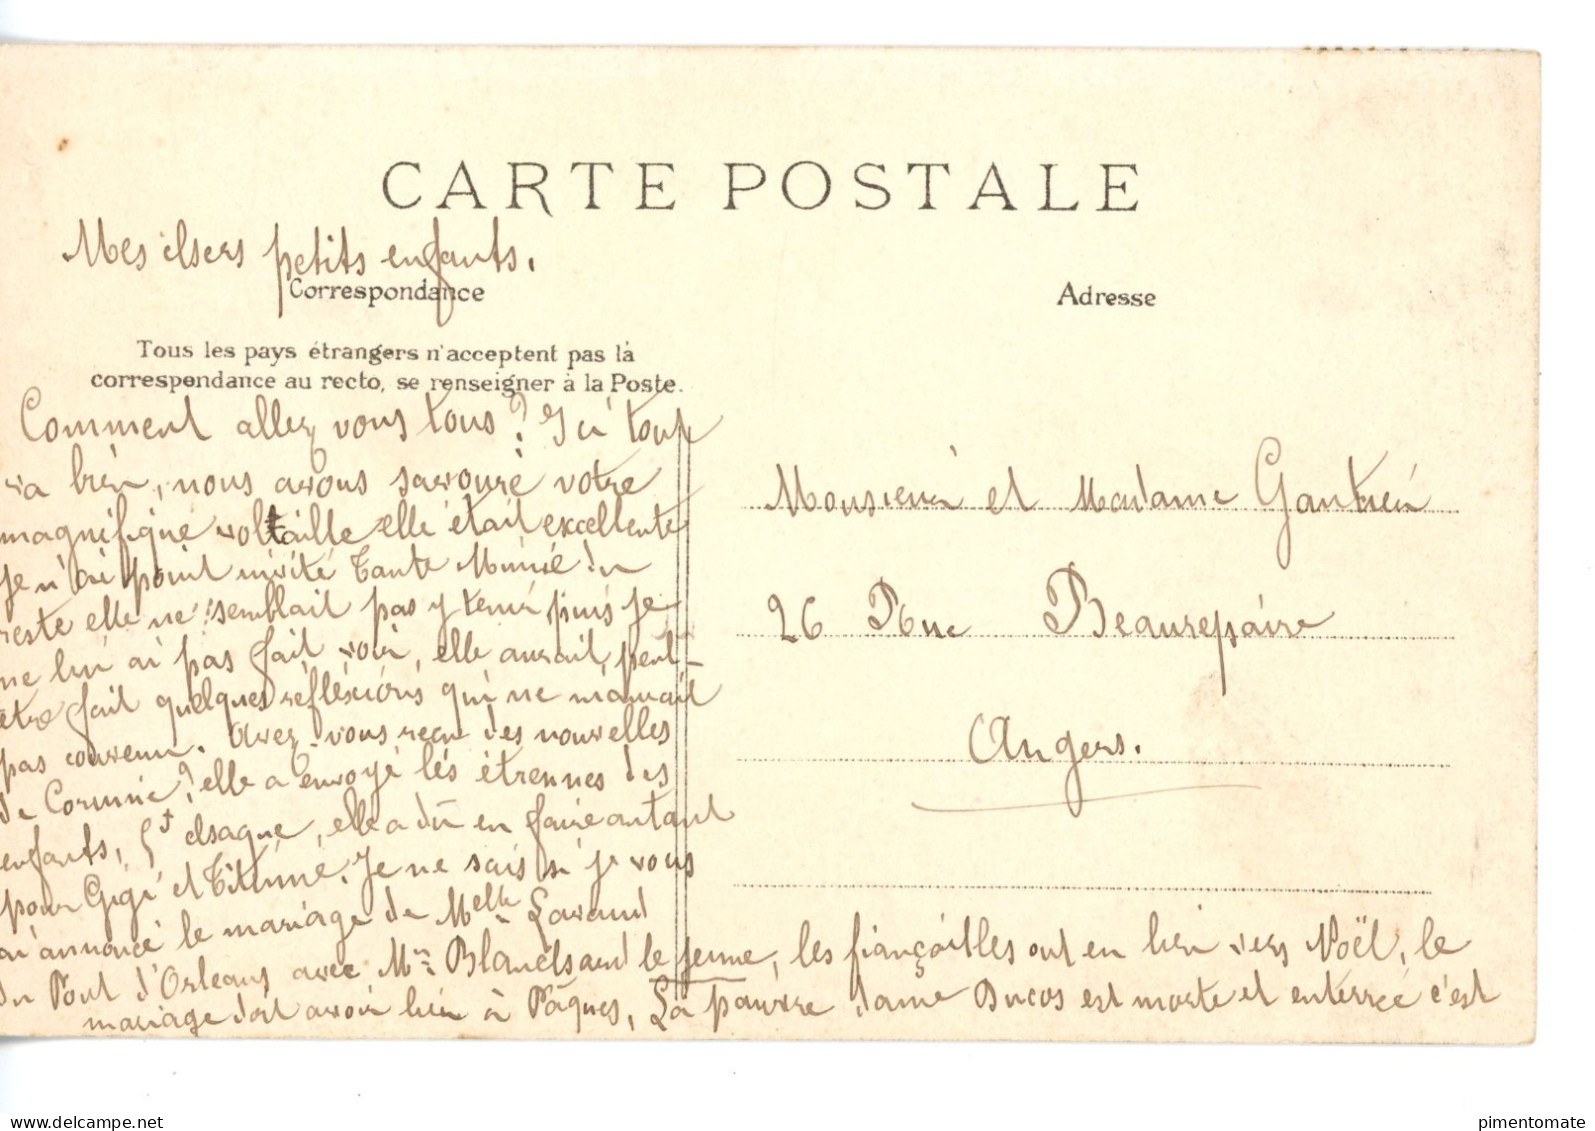 CARTE POSTALE
Mes chers petits enfants.
Correspondance
Adresse
Tous les pays étrangers n'acceptent pas la
correspondance au recto, se renseigner à la Poste.
Comment allez vous tous? Ici tout
va bien, nous avons savouré votre
magnifique voltaille elle était excellente
je n'ai point invité Tante Mimie du
reste elle ne semblait pas y tenir, puis je
ne lui ai pas fait voir, elle aurait peut-
etre fait quelques réfléxions qui ne m'aurait
pas convenu. Avez-vous reçu des nouvelles
de Corinne? elle a envoyé les étrennes des
enfants, St Jsaque, elle a dû en faire autant
pour Gigi et Titinne. Je ne sais si je vous
ai annoncé le mariage de Melle Lavaud
du Pont d'Orleans avec Mr Blanchaud le jeune, les fiançailles ont en lieu vers Noël, le
mariage doit avoir lieu à Pâques, La pauvre dame Ducos est morte et enterrée c'est
Monsieur et Madame Gautreix
26 Rue Beaurepaire
Angers.
www.delcampe.net
pimentomate